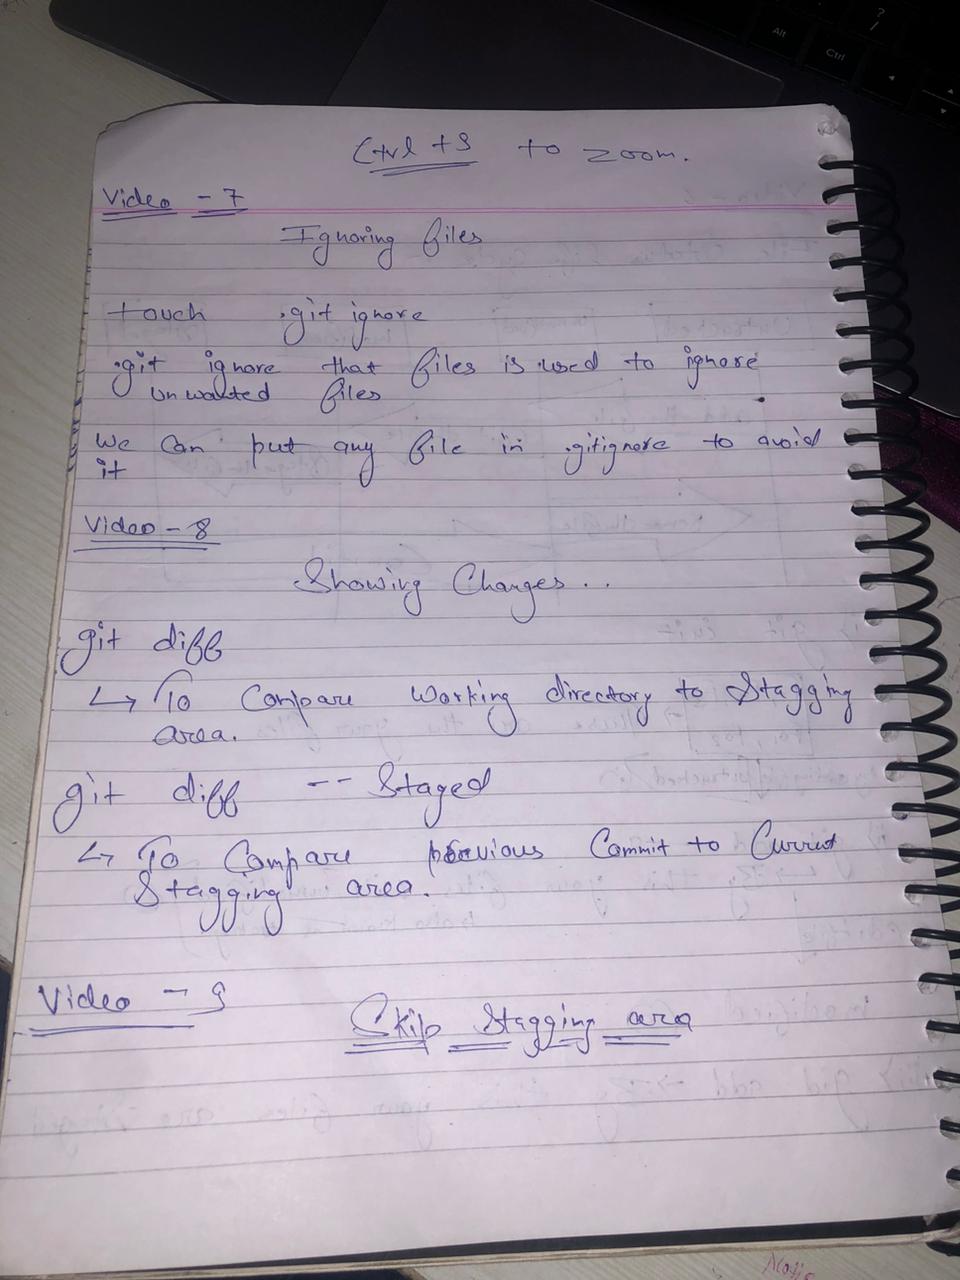 Ctrl + S to zoom.
Video - 7
Ignoring files
touch .git ignore
.git ignore that files is used to ignore
unwanted files
We Can put any file in .gitignore to avoid
it
Video - 8
Showing Changes...
git diff
↳ To Compare Working directory to Stagging
area.
git diff -- Staged
↳ To Compare previous Commit to Current
Stagging area.
Video - 9
Skip Stagging area
?
/
Alt
Ctrl